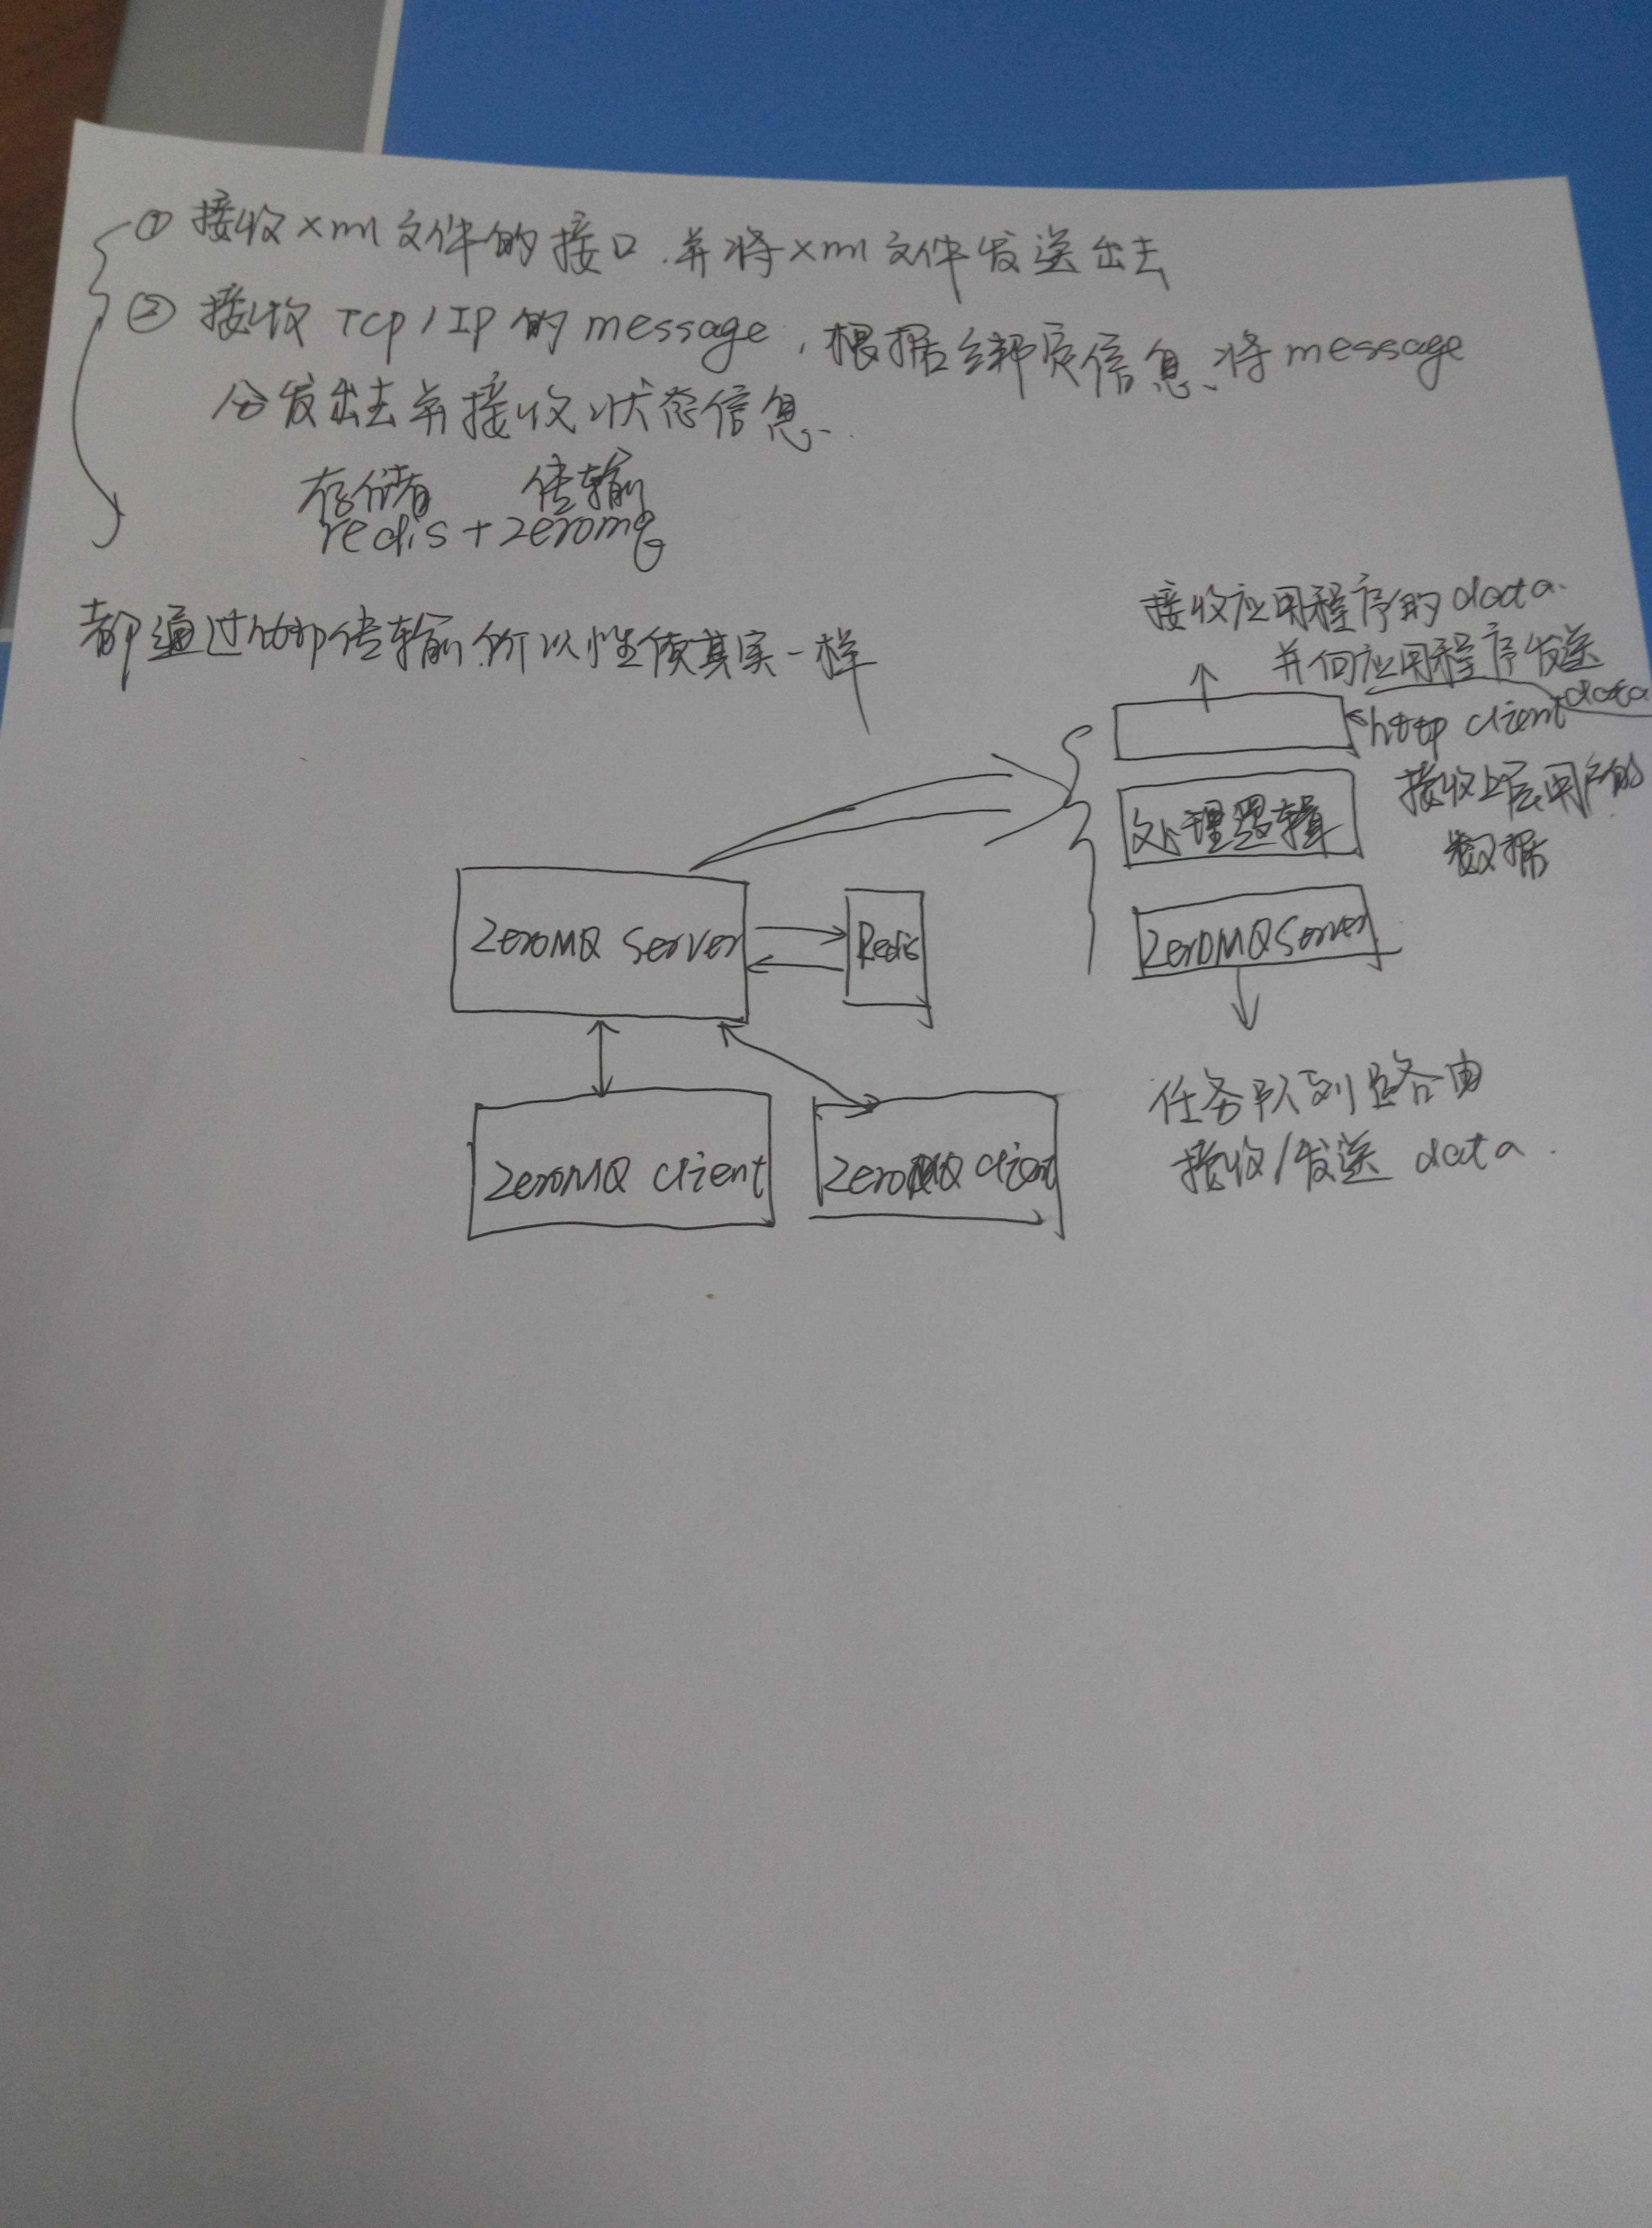 ① 接收xml文件的接口.并将xml文件发送出去
② 接收 TCP/IP 的 message, 根据绑定信息、将message
分发出去并接收状态信息.
存储 传输
redis + zeromq
都通过 传输.所以性 其实一样
接收应用程序的data.
并向应用程序发送
data
http client
接收上层用户的
数据
处理逻辑
ZeroMQ Server
ZeroMQ Server
Redis
ZeroMQ client
ZeroMQ client
任务队列 路由
接收/发送 data.